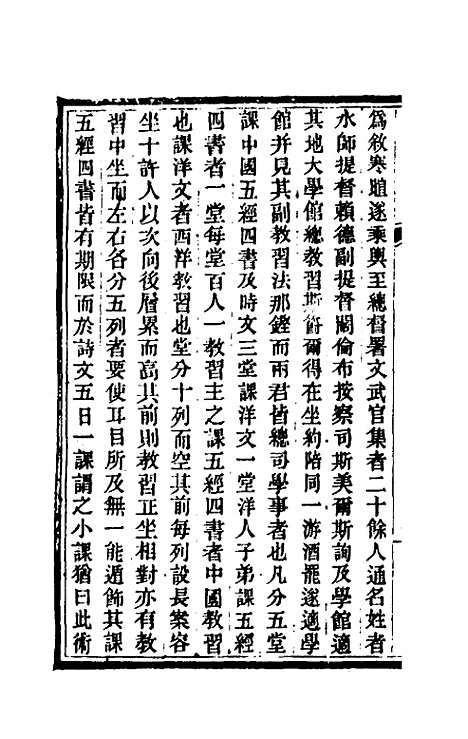 為敘寒暄遂乘輿至總督署文武官集者二十餘人通名姓者
水師提督賴德副提督闊倫布按察司斯美爾斯詢及學館適
其地大學館總教習斯爵爾得在坐約陪同一游酒罷遂適學
館并見其副教習法那鏗而兩君皆總司學事者也凡分五堂
課中國五經四書及時文三堂課洋文一堂洋人子弟課五經
四書者一堂每堂百人一教習主之課五經四書者中國教習
也課洋文者西洋教習也堂分十列而空其前每列設長案容
坐十許人以次向後層累而高其前則教習正坐相對亦有教
習中坐而左右各分五列者要使耳目所及無一能遁飾其課
五經四書皆有期限而於詩文五日一課謂之小課猶曰此術